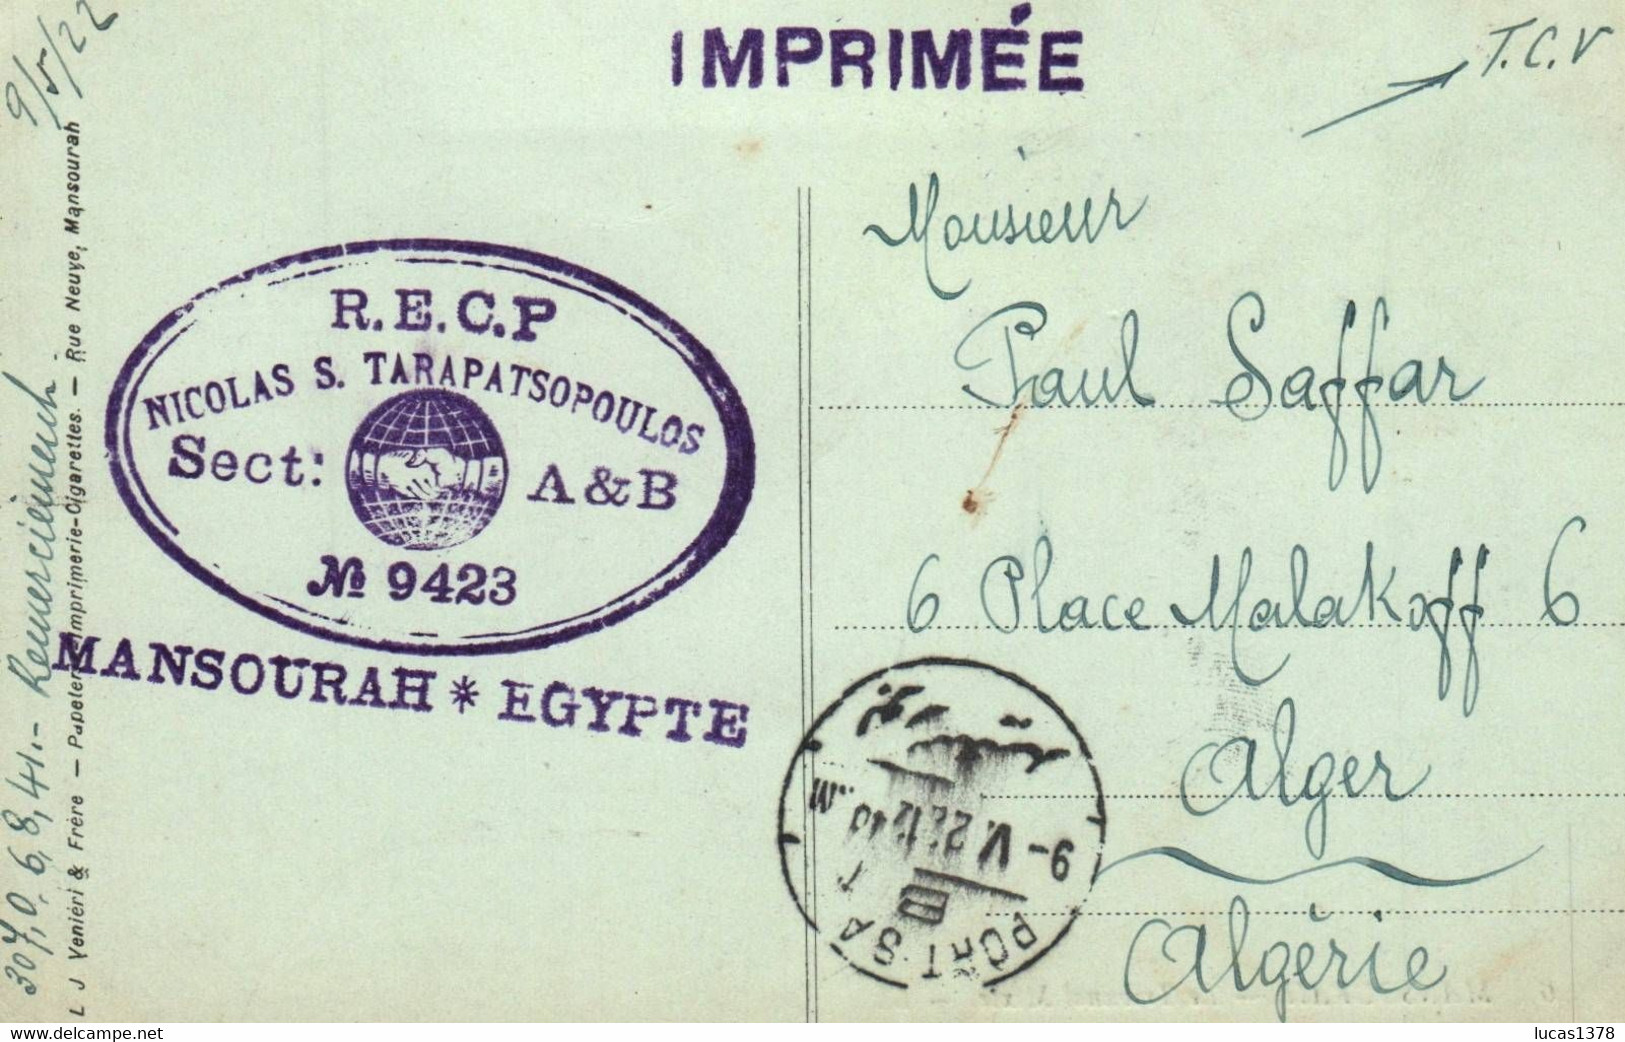 9/5/22
IMPRIMÉE
T.C.V
R.E.C.P
NICOLAS S. TARAPATSOPOULOS
Sect: A & B
№ 9423
MANSOURAH * EGYPTE
Monsieur
Paul Saffar
6 Place Malakoff 6
Alger
Algérie
9-V.22.12
PORT SA
307,0,6,8,41.- Remerciement
L J Veniéri & Frère — Papeterie-Imprimerie-Cigarettes. — Rue Neuve, Mansourah
lucas1378